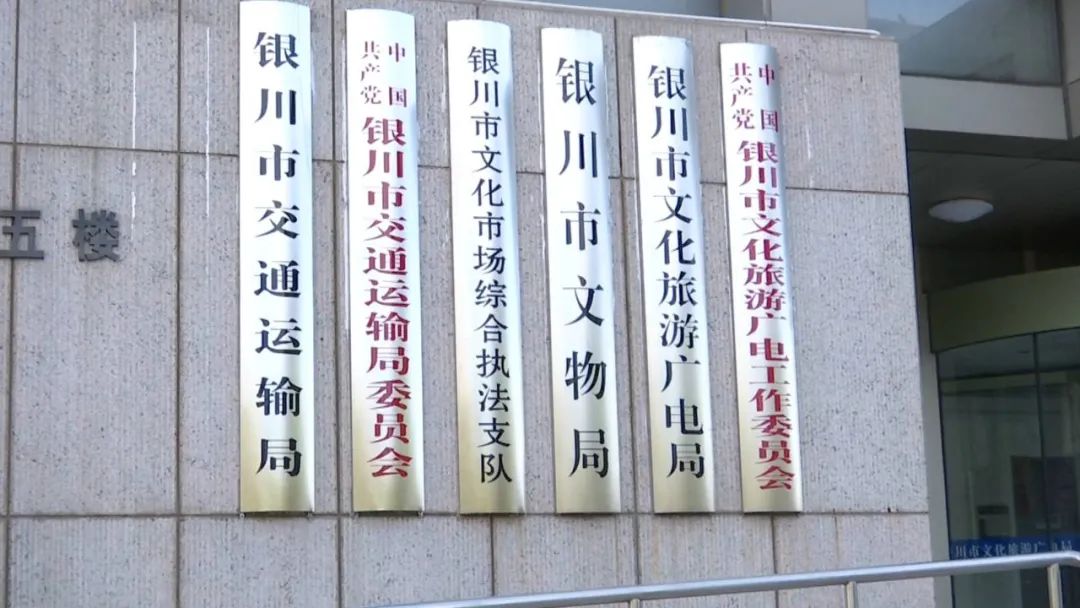 五楼
银川市交通运输局
中国共产党银川市交通运输局委员会
银川市文化市场综合执法支队
银川市文物局
银川市文化旅游广电局
中国共产党银川市文化旅游广电工作委员会
川市文化旅游广电局